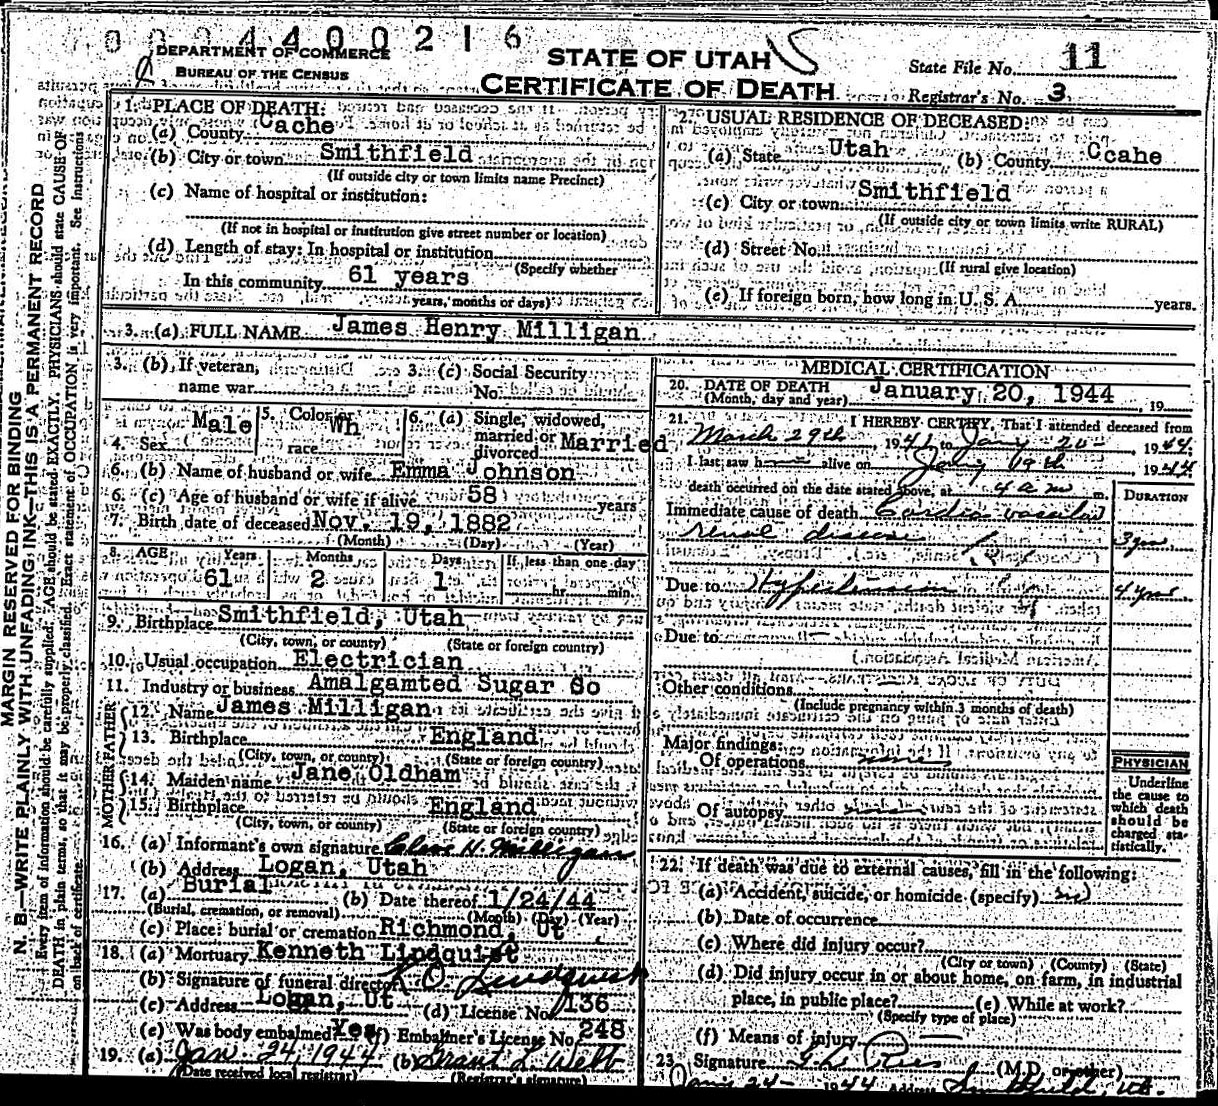 0004400216
DEPARTMENT OF COMMERCE
BUREAU OF THE CENSUS
STATE OF UTAH
CERTIFICATE OF DEATH
State File No. 11
Registrar's No. 3
MARGIN RESERVED FOR BINDING
N. B.—WRITE PLAINLY WITH UNFADING INK—THIS IS A PERMANENT RECORD
Every item of information should be carefully supplied. AGE should be stated EXACTLY. PHYSICIANS should state CAUSE OF
DEATH in plain terms, so that it may be properly classified. Exact statement of OCCUPATION is very important. See instructions
on back of certificate.
1. PLACE OF DEATH:
(a) County Cache
(b) City or town Smithfield
(If outside city or town limits name Precinct)
(c) Name of hospital or institution:
(If not in hospital or institution give street number or location)
(d) Length of stay: In hospital or institution
(Specify whether
In this community 61 years
years, months or days)
2. USUAL RESIDENCE OF DECEASED:
(a) State Utah (b) County Ccahe
(c) City or town Smithfield
(If outside city or town limits write RURAL)
(d) Street No.
(If rural give location)
(e) If foreign born, how long in U. S. A. years.
3. (a) FULL NAME James Henry Milligan
3. (b) If veteran, name war
3. (c) Social Security No.
4. Sex Male 5. Color or race Wh 6. (a) Single, widowed, married or divorced Married
6. (b) Name of husband or wife Emma Johnson
6. (c) Age of husband or wife if alive 58 years
7. Birth date of deceased Nov. 19, 1882
(Month) (Day) (Year)
8. AGE Years Months Days If less than one day
61 2 1 hr. min.
9. Birthplace Smithfield, Utah
(City, town, or county) (State or foreign country)
10. Usual occupation Electrician
11. Industry or business Amalgamted Sugar So
FATHER
12. Name James Milligan
13. Birthplace England
(City, town, or county) (State or foreign country)
MOTHER
14. Maiden name Jane Oldham
15. Birthplace England
(City, town, or county) (State or foreign country)
16. (a) Informant's own signature H. Milligan
(b) Address Logan, Utah
17. (a) Burial (b) Date thereof 1/24/44
(Burial, cremation, or removal) (Month) (Day) (Year)
(c) Place: burial or cremation Richmond, Ut
18. (a) Mortuary Kenneth Lindquist
(b) Signature of funeral director K. O. Lindquist
(c) Address Logan, Ut (d) License No. 136
(e) Was body embalmed? Yes (f) Embalmer's License No. 248
19. (a) Jan 24, 1944 (b) Grant L. Webb
(Date received local registrar) (Registrar's signature)
MEDICAL CERTIFICATION
20. DATE OF DEATH January 20, 1944, 19
(Month, day and year)
21. I HEREBY CERTIFY, That I attended deceased from
March 29th, 1941 to Jany 20, 1944,
I last saw h alive on Jany 19th 1944
death occurred on the date stated above, at 4 a m m.
DURATION
Immediate cause of death Cardio vascular
renal disease 3 yrs
Due to Hypertension 4 yrs
Due to
Other conditions
(Include pregnancy within 3 months of death)
Major findings:
Of operations none
Of autopsy
PHYSICIAN
Underline
the cause to
which death
should be
charged sta-
tistically.
22. If death was due to external causes, fill in the following:
(a) Accident, suicide, or homicide (specify) no
(b) Date of occurrence
(c) Where did injury occur?
(City or town) (County) (State)
(d) Did injury occur in or about home, on farm, in industrial
place, in public place? (e) While at work?
(Specify type of place)
(f) Means of injury
23. Signature G L Rees (M.D. or other)
Jany 24 1944 Address Smithfield, Ut.